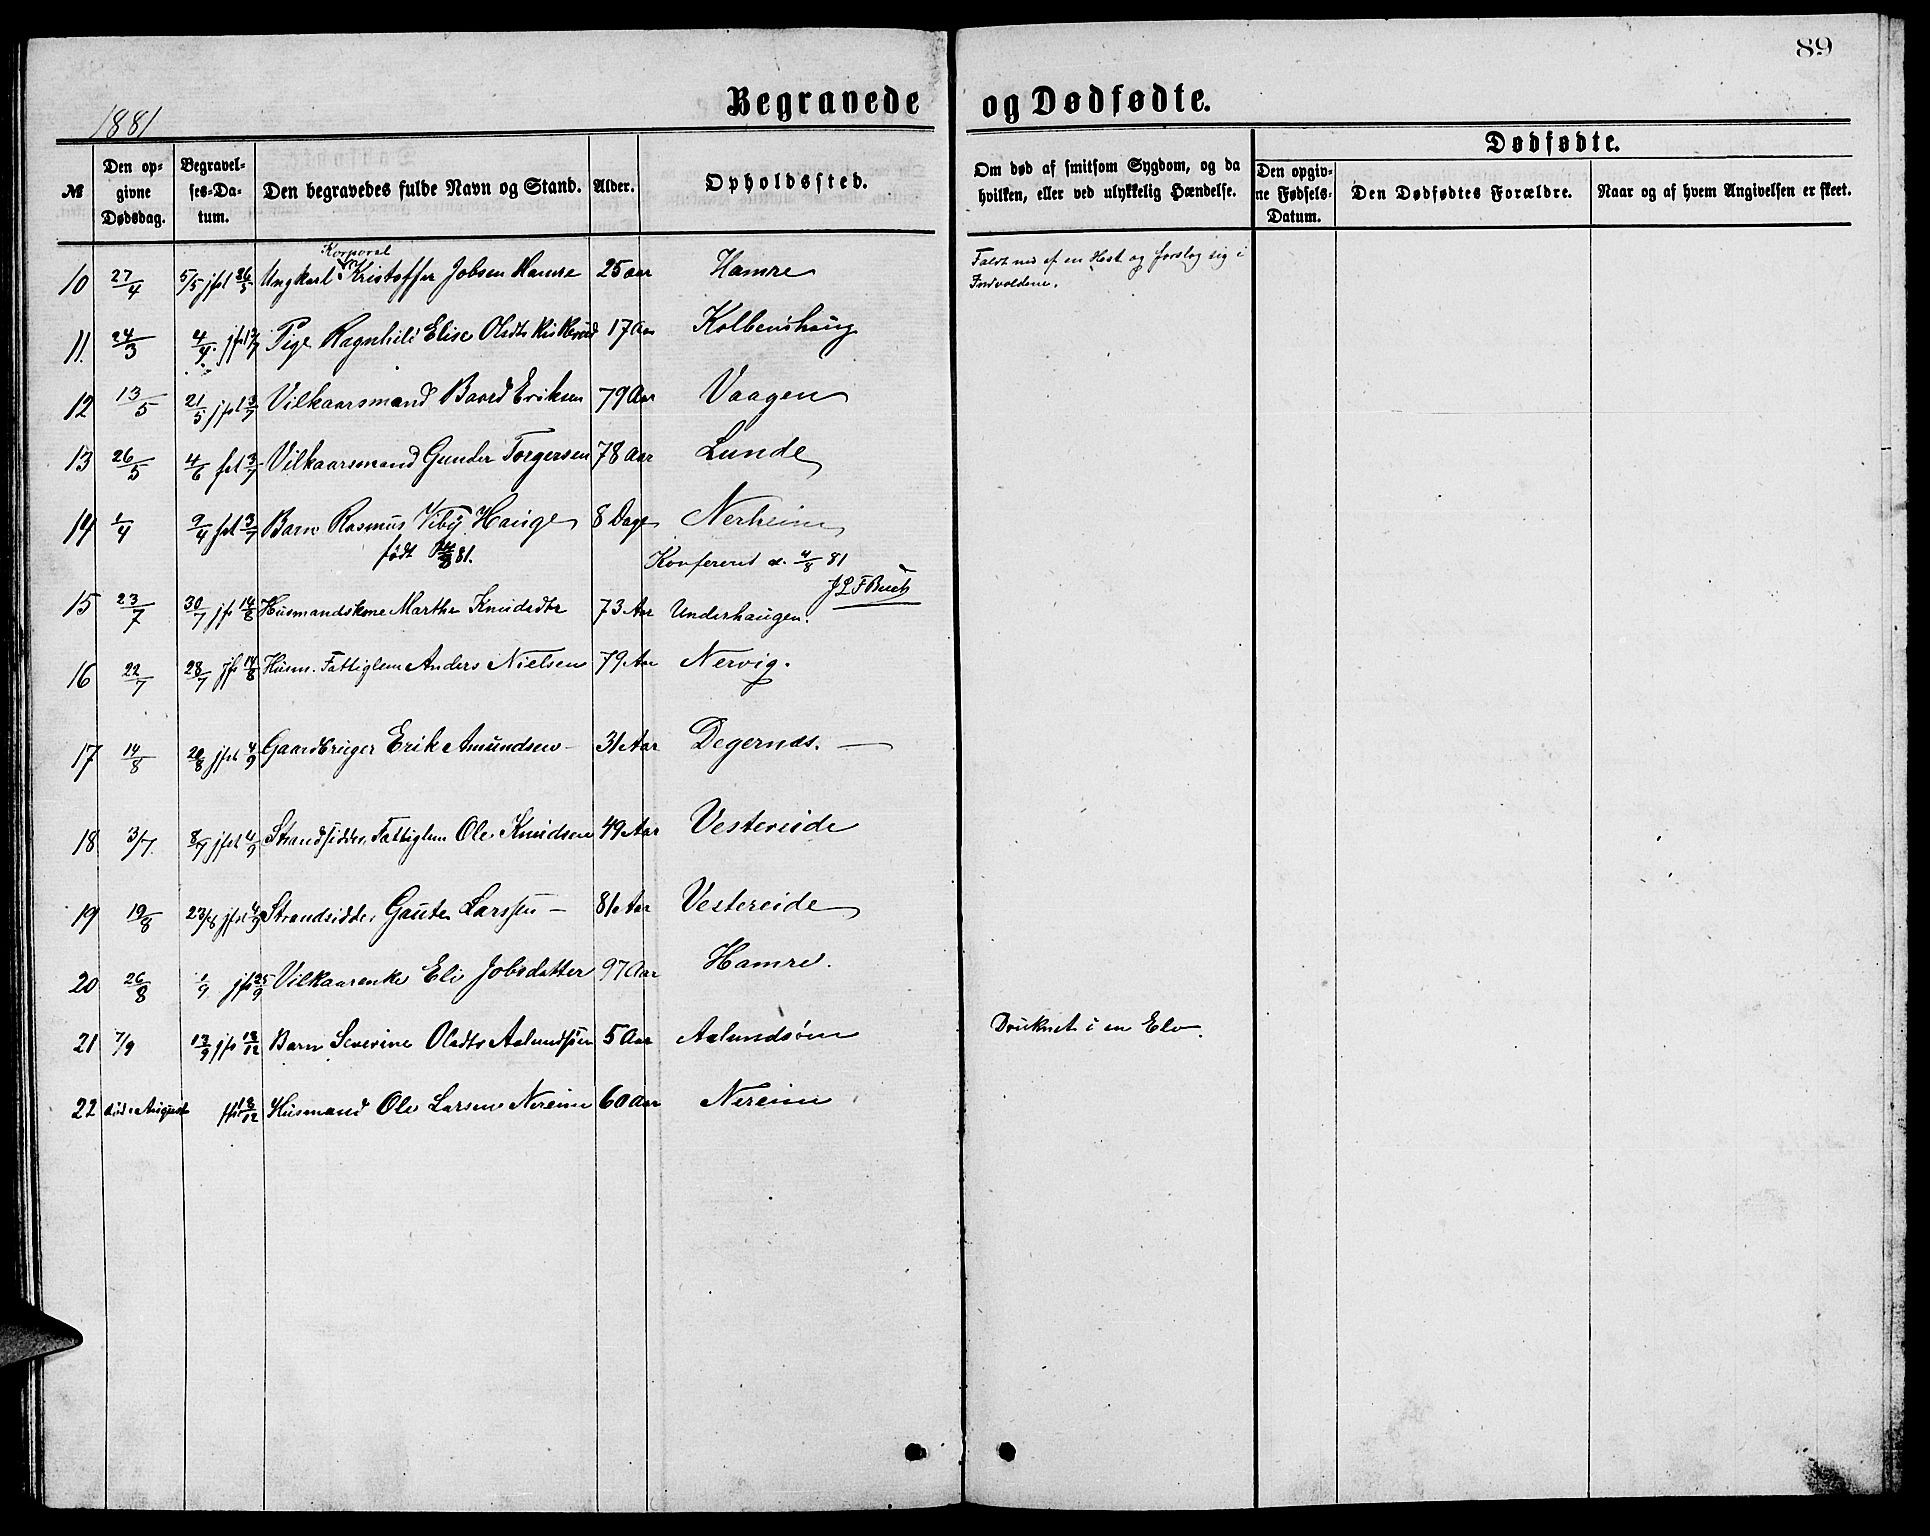 89
1881
Begravede og Dødfødte.
№ Den op-givne Dødsdag. Begravel-ses-Da-tum. Den begravedes fulde Navn og Stand. Alder. Opholdssted. Om død af smitsom Sygdom, og da hvilken, eller ved ulykkelig Hændelse.
Dødfødte.
Den opgiv-ne Fødsels-Datum. Den Dødfødtes Forældre. Naar og af hvem Angivelsen er skeet.
Korporal
10 27/4 5/5 jfst 26/5 Ungkarl Kristoffer Jobsen Hamre 25 aar Hamre Faldt ned af en Hest og forslog sig i
Indvoldene.
11. 24/3 4/4. jfst 3/7 Pige Ragnhild Elise Olsdtr 17 Aar Kolbenshaug
12 13/5 21/5 jfst 3/7 Vilkaarsmand Baard Eriksen 79 Aar Vaagen
13 26/5 4/6 fst 3/7 Vilkaarsmand Gunder Torgersen 78 Aar Lunde
14 1/4 9/4 fst 3/7 Barn Rasmus Viby Hauge 8 Dage Nerheim
født 81. Konfereret d. 4/8 81
J L F Buch
15 23/7 30/7 jf 14/8 Husmandskone Marthe Knudsdtr 73 Aar Underhaugen.
16 22/7 28/7 jfs 14/8 Husm. Fattiglem Anders Nielsen 79 Aar Nervig.
17 14/8 20/8 jfst 4/9 Gaardbruger Erik Amundsen 31 Aar Degernæs.
18 3/7. 8/7 jfst 4/9 Strandsidder, Fattiglem Ole Knudsen 49 Aar Vestereide
19 19/8 23/8 jfst 4/9 Strandsidder Gaute Larssen 81 Aar Vestereide
20 26/8 1/9 jfs 25/9 Vilkaarenke Eli Jobsdatter 97 Aar Hamre.
21 7/9 13/9 jfs 18/12 Barn Severine Olsdtr Aalundsøen 5 Aar Aalundsøen Druknet i en Elv.
22 sidst i August jfs 18/12 Husmand Ole Larsen Nereim 60 Aar Nereim